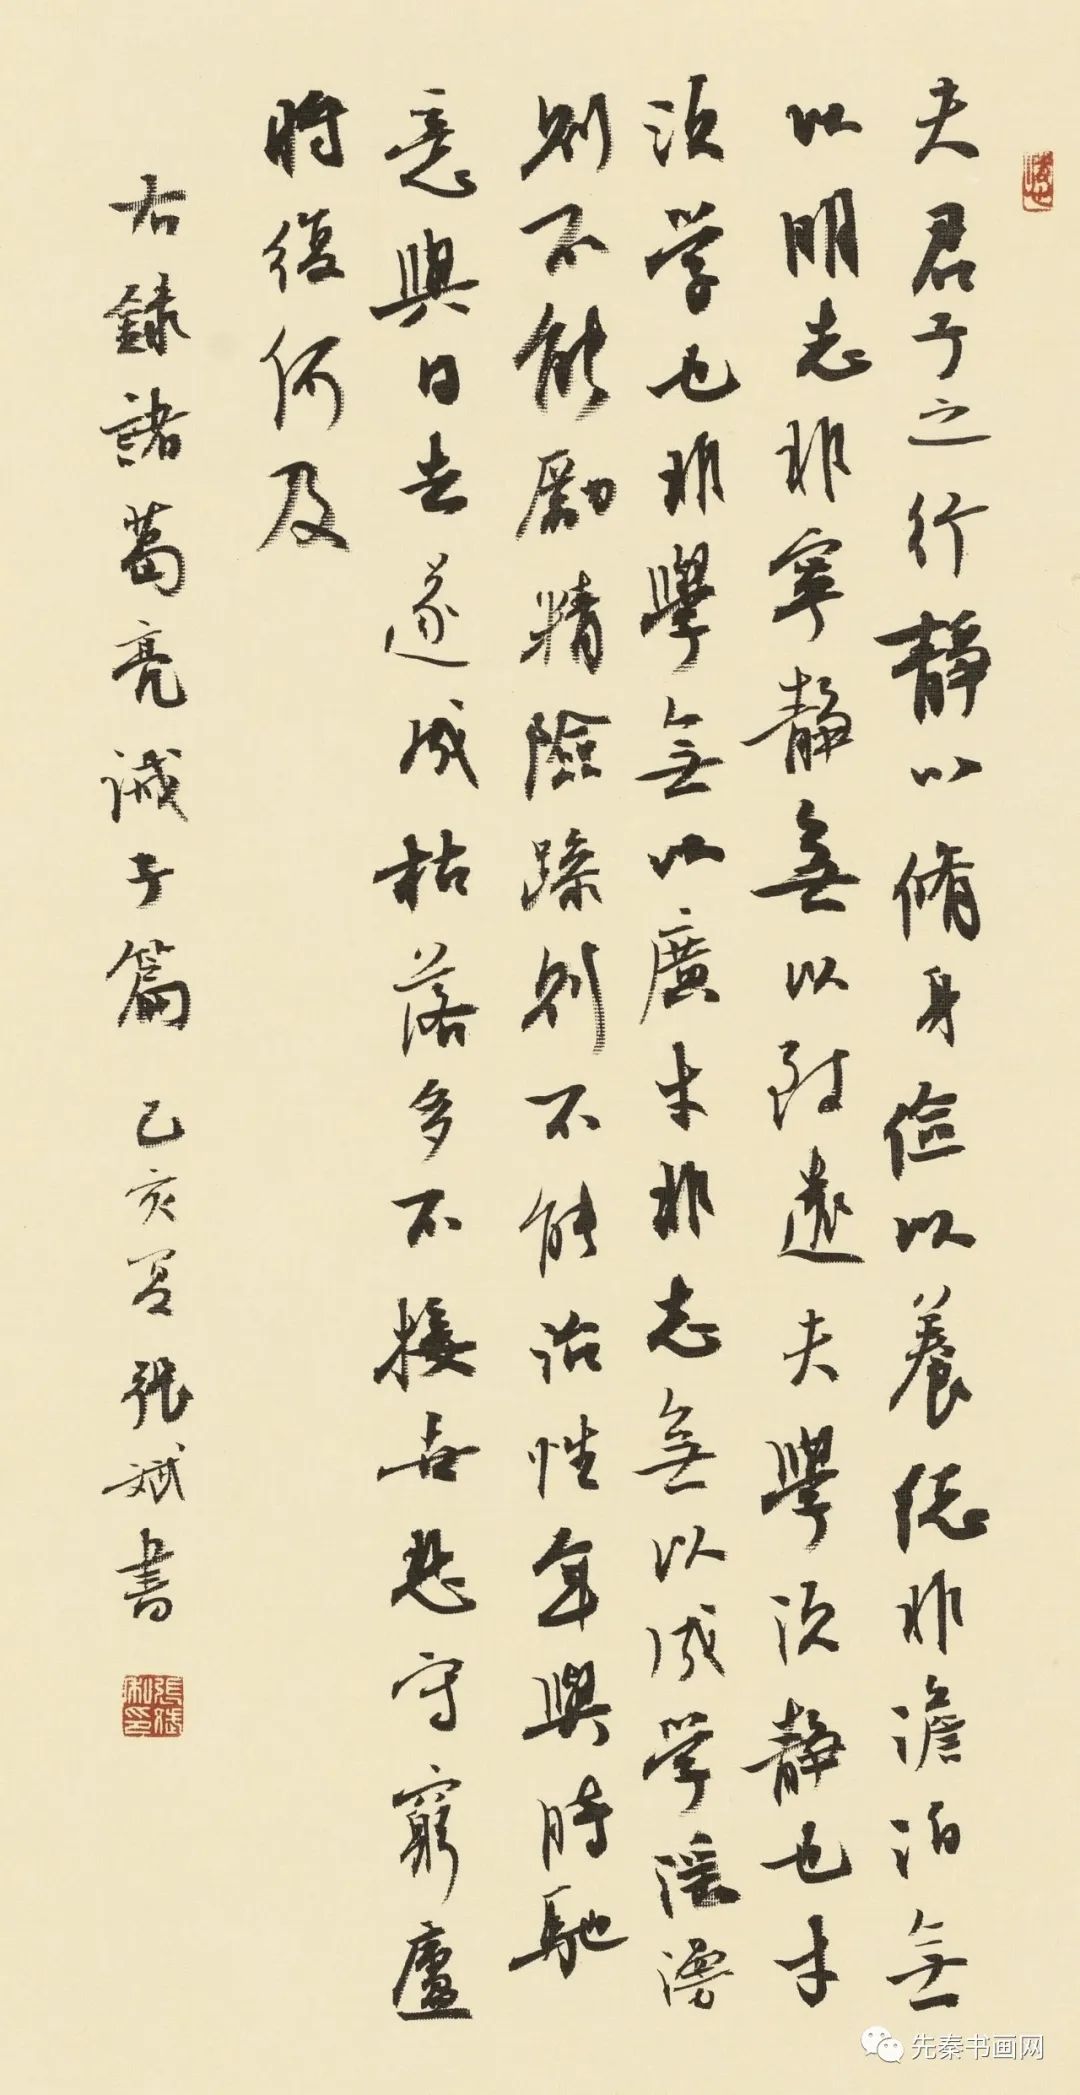 夫君子之行靜以脩身儉以養德非澹泊無
以明志非寧靜無以致遠夫學須靜也才
須学也非學無以廣才非志無以成学淫漫
則不能勵精險躁則不能治性年與時馳
意與日去遂成枯落多不接世悲守窮廬
將復何及
右錄諸葛亮誡子篇 己亥夏 張斌書
張斌私印
先秦书画网